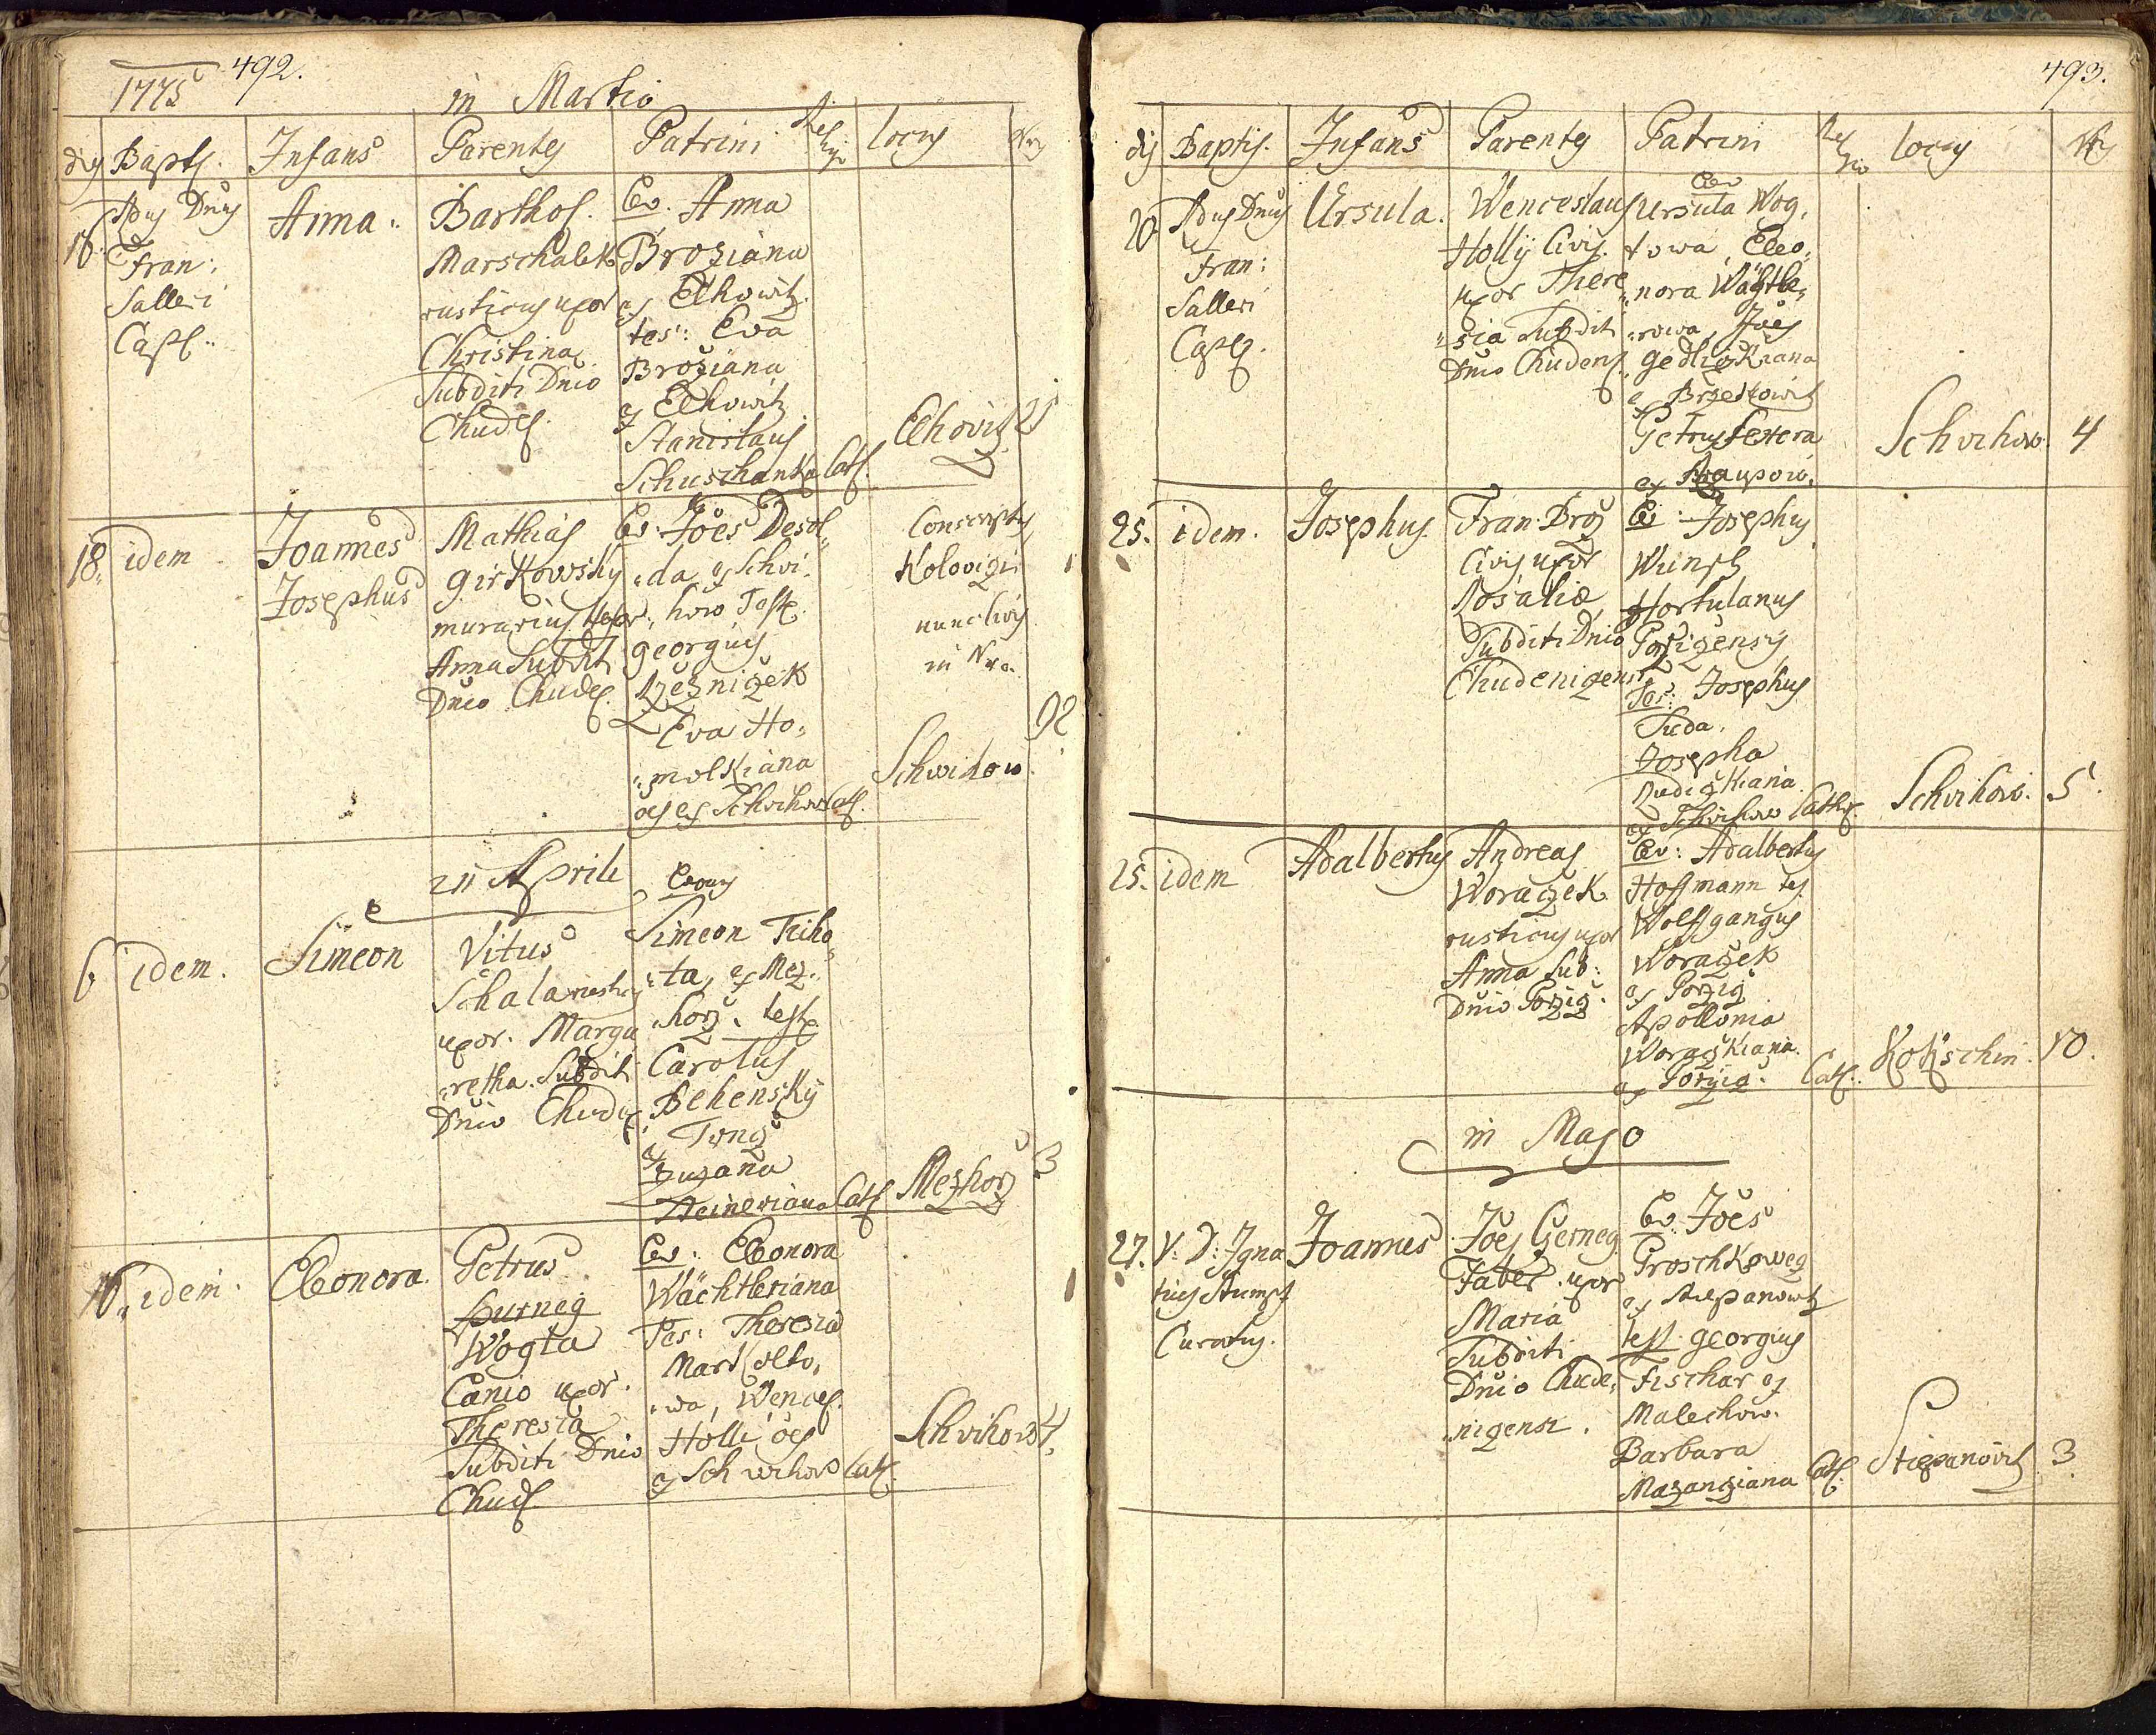 1775
492.
in Martio
dies Bapts. Infans Parentes Patrini Religio locus Nrus
16. Adus Dnus Fran: Salleri Capl.
Anna.
Barthol.
Marschalek
rusticus uxor
Christina
Subditi Dnio
Chudes.
Lev. Anna
Broziana
ex Elhowitz.
tes: Eva
Broziana
ex Elhowitz
Stanislaus
Schuschanka Cath.
Elhovitz 21
18. idem
Joannes
Josephus
Mathias
Girkovsky
murarius Uxor
Anna Subdit
Dnio Chudes.
Lev. Joes Desol„
„da ex Schvi„
„how Teste
georgius
Rzeznizek
Eva Ho„
„molkiana
oes ex Schvihow Cath.
Conscriptus
Kolovizii
nunc huius
in Nro.
92
Schwihow
in Aprili
6 idem.
Simeon
Vitus
Schala rusticus
uxor. Marga„
„retha. Subditi
Dnio Chudes.
Levans
Simeon Tiho„
„ta, ex Mez„
„horz. teste
Carolus
Behensky
ex Trnz
Zuzana
Heineriana Cath.
Mezhorz 3
16. idem.
Eleonora.
Petrus
Hurneg
Wogta
Canio uxor.
Theresia
Subditi Dnio
Chud.
Lev: Eleonora
Wächtleriana
Tes: Theresia
Markolto„
„wa, Wences.
Holli oes
ex Schwihow Cath.
Schvihow 4.
493.
dies Baptis. Infans Parentes Patrini Religio locus Nrus
20. Adus Dnus
Fran:
Salleri
Capl.
Ursula.
Wenceslaus
Hollÿ Civis.
uxor There„
„sia Subdit
Dnio Chudens.
Lev
Ursula Wog„
towa, Eleo„
„nora Wächtle„
„rowa, Joes
Gedlizkiana
ex Brzetkowitz
Petrus Sewera
ex
Schvihow. 4
25. idem.
Josephus.
Fran. Broz
Civis uxor
Rosalia
Subditi Dnio
Chudenizensi
Lev. Josephus
Wunsch
Hortulanus
Porzizensis
Tes: Josephus
Suda.
Josepha
Rudizkiana
ex Schvihow Cathol.
Schvihow. 5.
25. idem
Adalbertus
Andreas
Worazek
rusticus uxor
Anna Sub:
Dnio Porziz.
Lev: Adalbertus
Hoffmann tes.
Wolffgangus
Worazek
ex Porziz
Apollonia
Worazkiana.
ex Porziz. Cath.
Kokschin. 10.
in Majo
27. V: D: Igna
tius Stumpf
Curatus.
Joannes
Joes Czerneg
Faber. uxor
Maria
Subditi
Dnio Chude„
„nizensi.
Lev. Joes
Proschkoweg
ex Stiepanowitz
test. georgius
Fischar ex
Malechow.
Barbara
Mazanziana Cath.
Stiepanovitz 3.